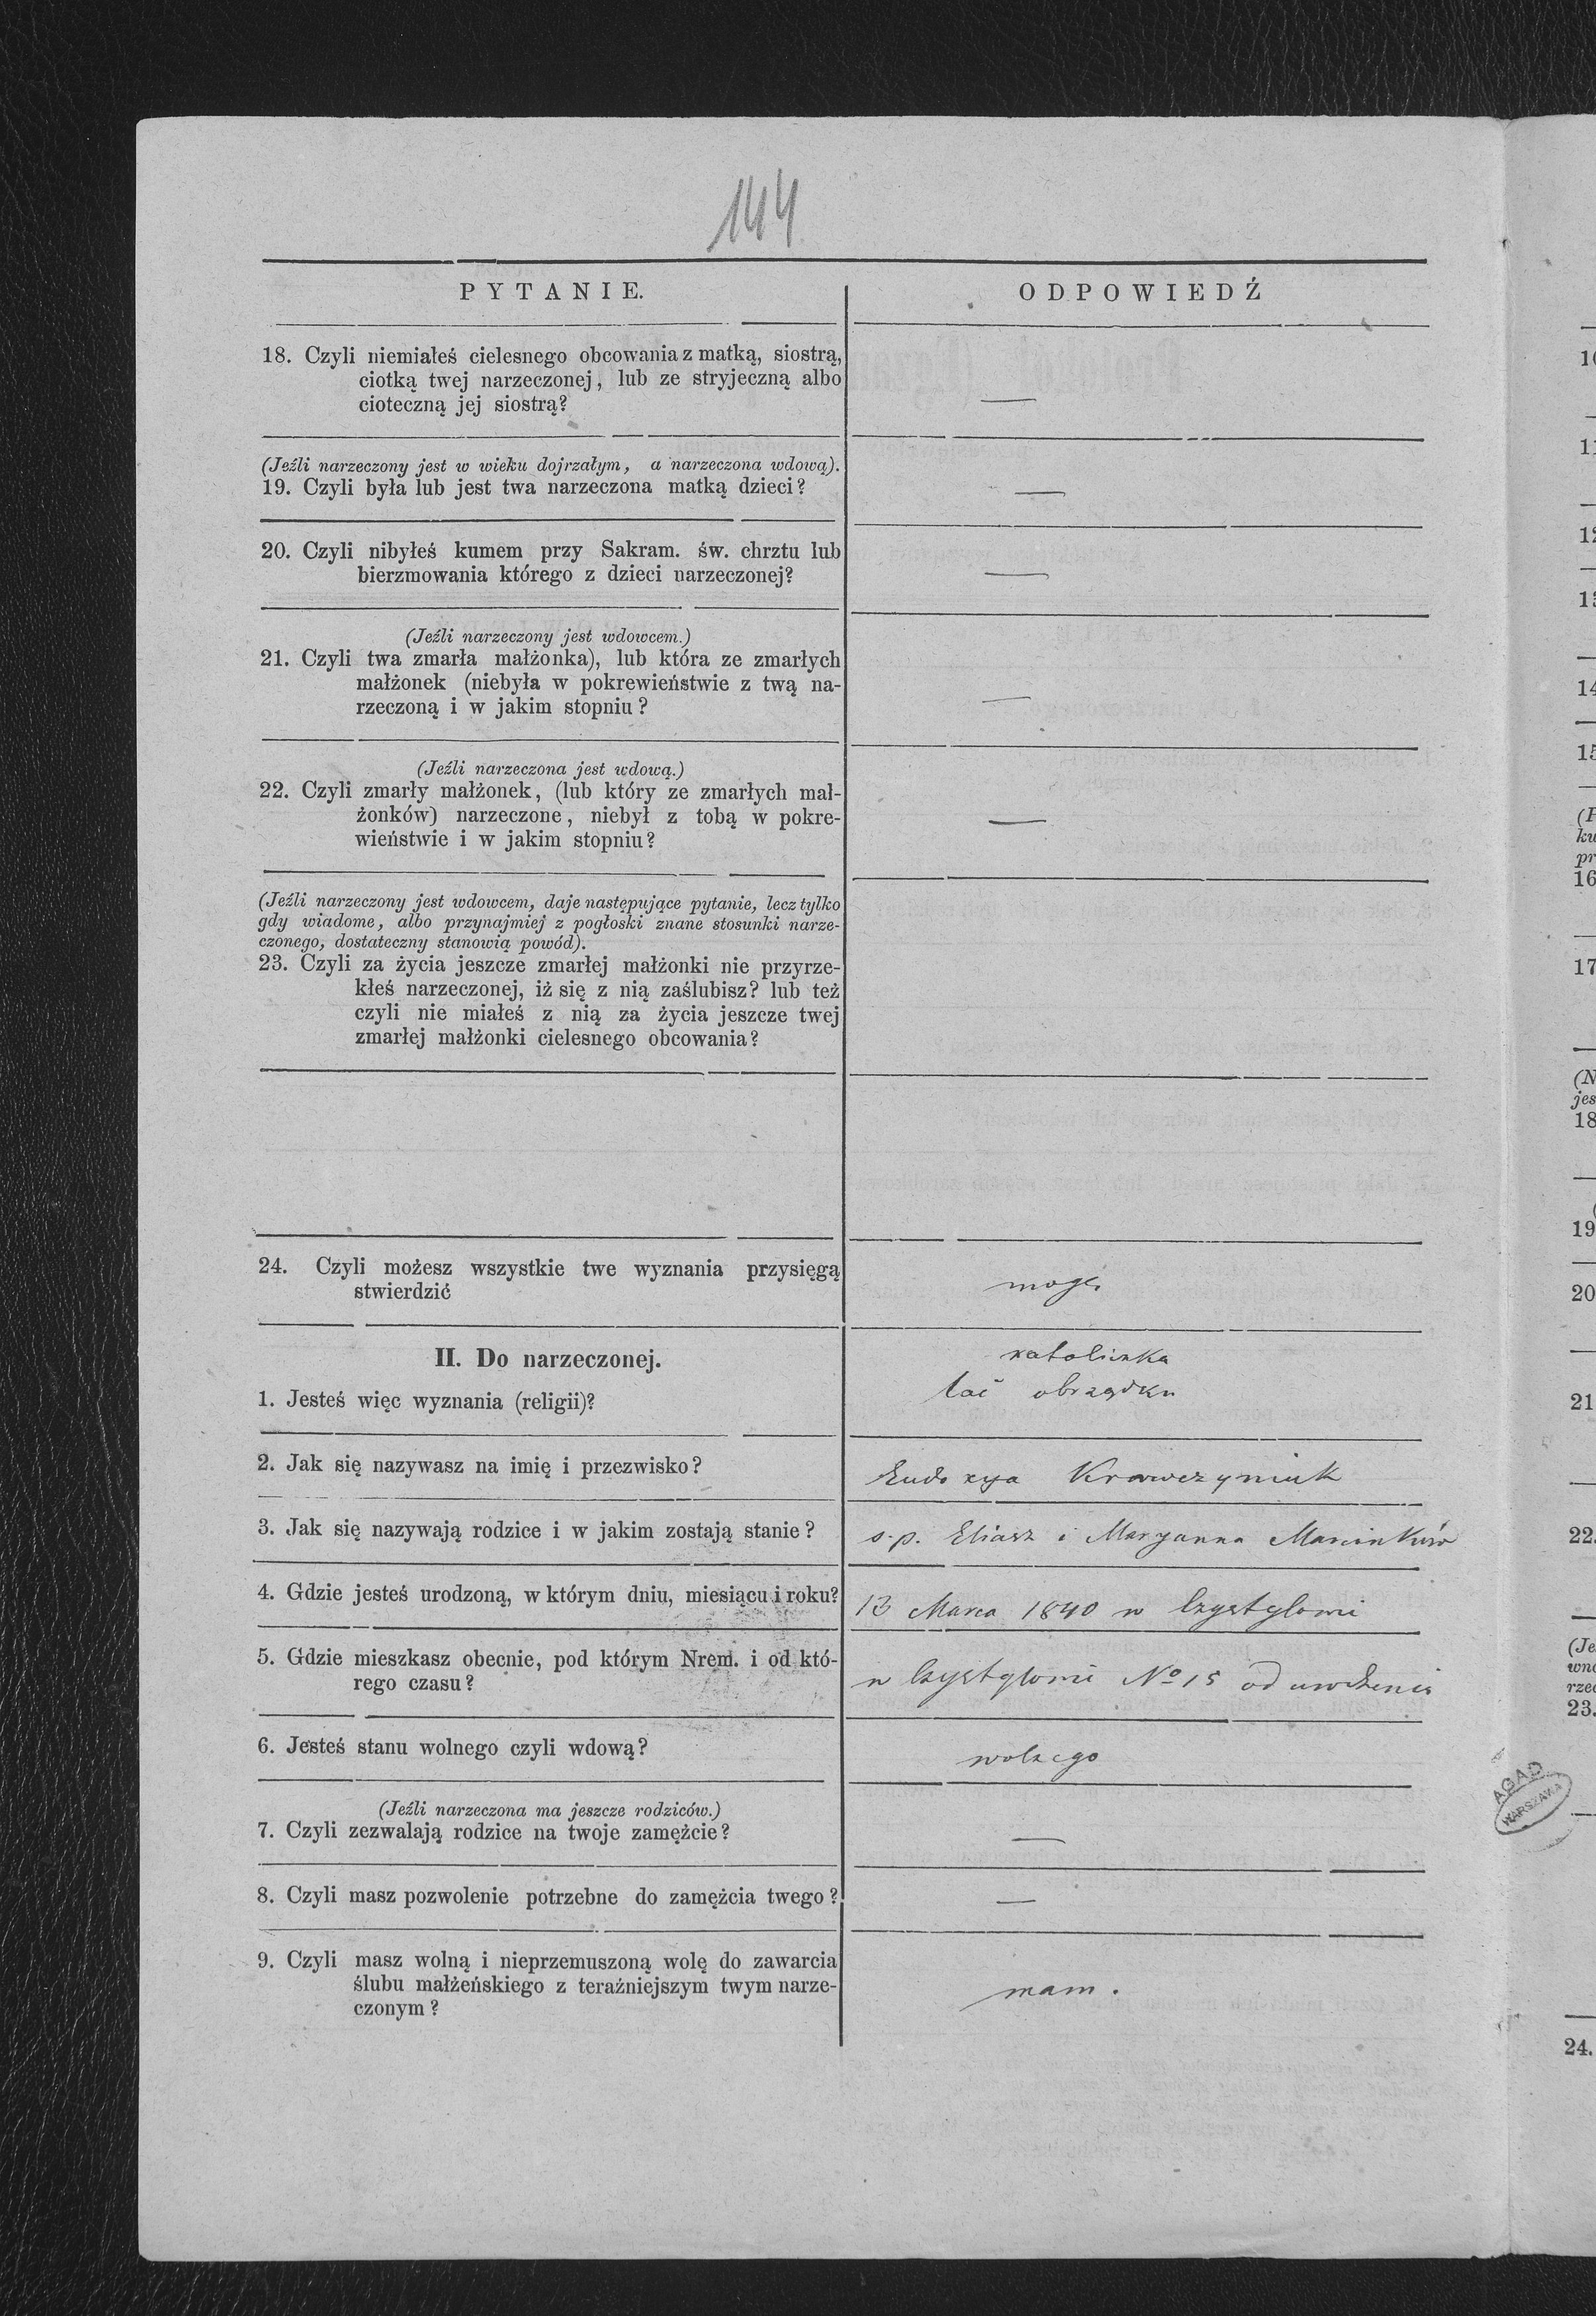 144
PYTANIE.
ODPOWIEDŹ
18. Czyli niemiałeś cielesnego obcowania z matką, siostrą,
ciotką twej narzeczonej, lub ze stryjeczną albo
cioteczną jej siostrą?
—
(Jeźli narzeczony jest w wieku dojrzałym, a narzeczona wdową).
19. Czyli była lub jest twa narzeczona matką dzieci?
—
20. Czyli nibyłeś kumem przy Sakram. św. chrztu lub
bierzmowania którego z dzieci narzeczonej?
—
(Jeźli narzeczony jest wdowcem.)
21. Czyli twa zmarła małżonka), lub która ze zmarłych
małżonek (niebyła w pokrewieństwie z twą na-
rzeczoną i w jakim stopniu?
—
(Jeźli narzeczona jest wdową.)
22. Czyli zmarły małżonek, (lub który ze zmarłych mał-
żonków) narzeczone, niebył z tobą w pokre-
wieństwie i w jakim stopniu?
—
(Jeźli narzeczony jest wdowcem, daje następujące pytanie, lecz tylko
gdy wiadome, albo przynajmiej z pogłoski znane stosunki narze-
czonego, dostateczny stanowią powód).
23. Czyli za życia jeszcze zmarłej małżonki nie przyrze-
kłeś narzeczonej, iż się z nią zaślubisz? lub też
czyli nie miałeś z nią za życia jeszcze twej
zmarłej małżonki cielesnego obcowania?
24. Czyli możesz wszystkie twe wyznania przysięgą
stwierdzić
mogę
II. Do narzeczonej.
1. Jesteś więc wyznania (religii)?
katoliczka
łać obrządku
2. Jak się nazywasz na imię i przezwisko?
Eudoxya Krawczyniuk
3. Jak się nazywają rodzice i w jakim zostają stanie?
s.p. Eliasz i Maryanna Marcinków
4. Gdzie jesteś urodzoną, w którym dniu, miesiącu i roku?
13 Marca 1840 w Czystyłowie
5. Gdzie mieszkasz obecnie, pod którym Nrem. i od któ-
rego czasu?
w Czystyłowie No 15 od urodzenia
6. Jesteś stanu wolnego czyli wdową?
wolnego
(Jeźli narzeczona ma jeszcze rodziców.)
7. Czyli zezwalają rodzice na twoje zamęźcie?
—
8. Czyli masz pozwolenie potrzebne do zamężcia twego?
—
9. Czyli masz wolną i nieprzemuszoną wolę do zawarcia
ślubu małżeńskiego z teraźniejszym twym narze-
czonym?
mam.
12
14
(N
jes
18
19
20
21
22.
(Je
wno
rzec
23.
AGAD
WARSZAWA
24.